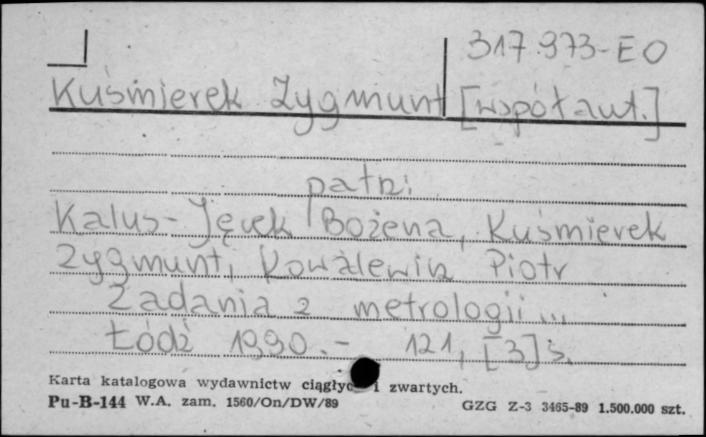 317.973-EO
Kuśmierek Zygmunt [współaut.]
patrz:
Kalus-Jęcek Bożena, Kuśmierek
Zygmunt, Kowalewicz Piotr
Zadania z metrologii...
Łódź 1990.- 121, [3] s.
Karta katalogowa wydawnictw ciągłych i zwartych.
Pu-B-144 W.A. zam. 1560/On/DW/89 GZG Z-3 3465-89 1.500.000 szt.